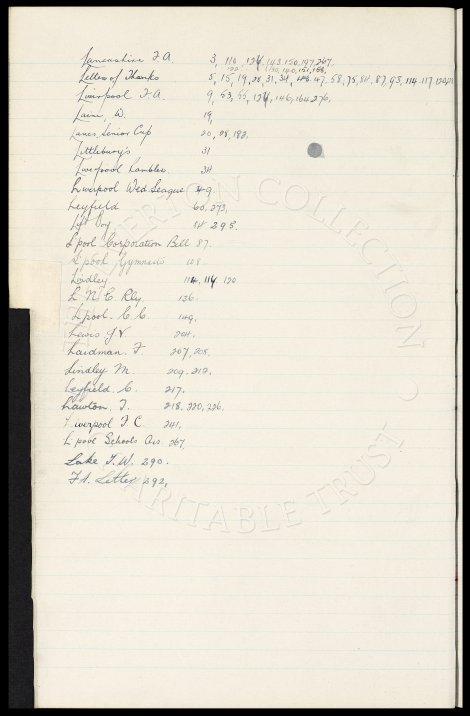 Lancashire F.A. 3, 110, 124, 143, 150, 197, 267,
Letters of Thanks 5, 15, 19, 28, 31, 34, 47, 58, 75, 84, 87, 93, 114, 117, 120,
Liverpool F.A. 9, 53, 55, 124, 146, 164, 276,
Laine, W. 19,
Lancs. Senior Cup 20, 28, 182,
Littlebury's 31
Liverpool Rambler 34
Liverpool Wed. League 49.
Leyfield 60, 273,
Lift Boy 84 295.
L'pool Corporation Bill 87.
L'pool Gymnasia 108.
Lindley 114, 114, 120
L. N. C. Rly. 136.
L'pool. C. C. 149,
Lewis J V. 204.
Laidman. F. 207, 208.
Lindley M 209, 212,
Leyfield C. 217.
Lawton, T. 218, 220, 226,
Liverpool F C. 241,
L'pool Schools Ass. 267.
Lake T. W. 290.
F.A. Letter 292,
EVERTON COLLECTION
CHARITABLE TRUST